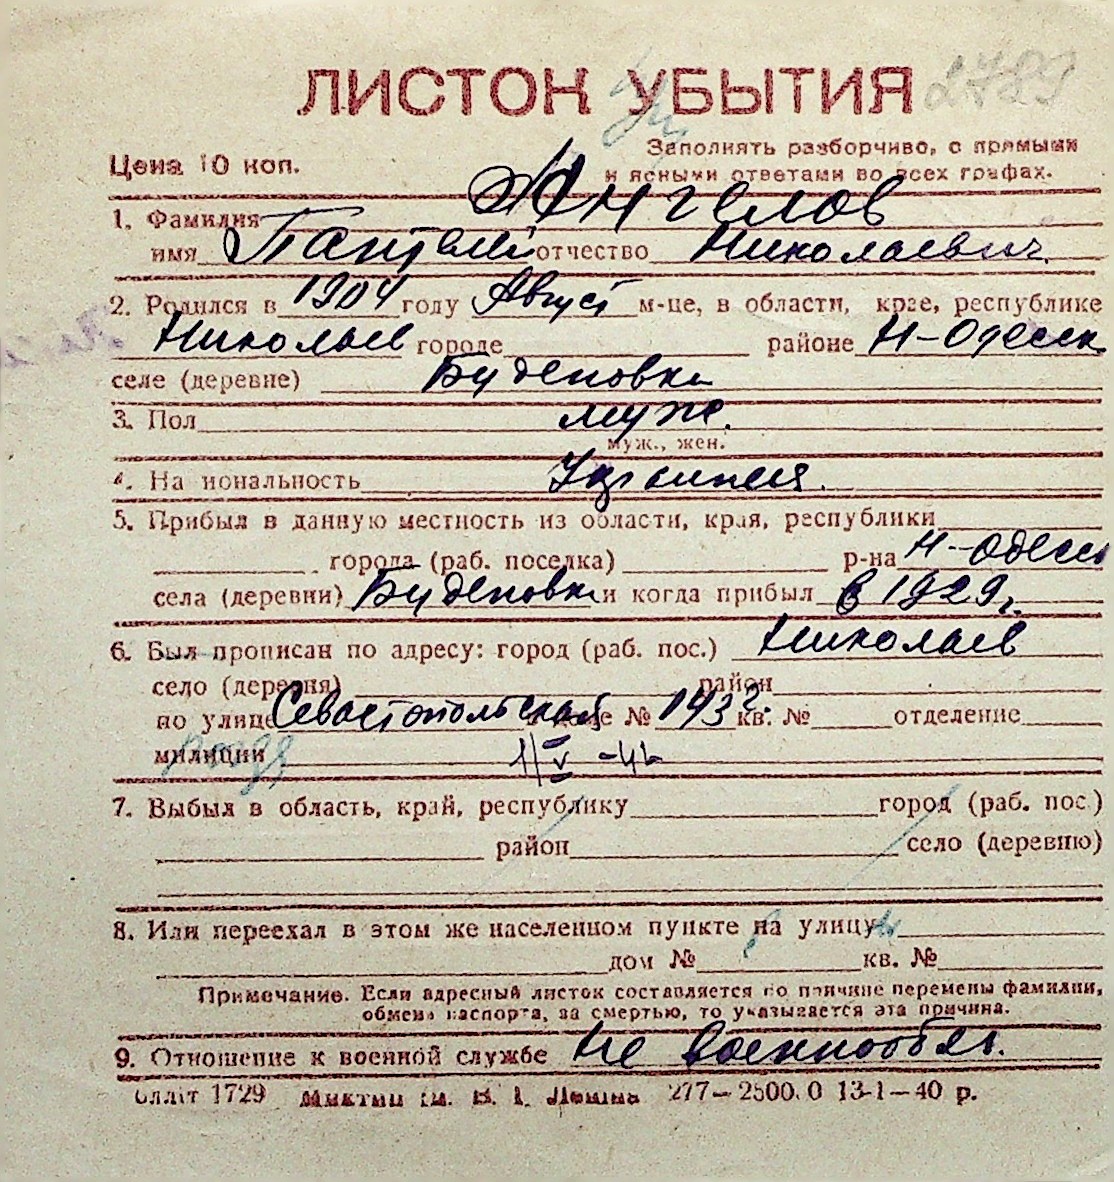 ЛИСТОК УБЫТИЯ
Цена 10 коп.
Заполнять разборчиво, с прямыми
и ясными ответами во всех графах.
1. Фамилия Ангелов
имя Пантелей отчество Николаевич
2. Родился в 1904 году Август м-це, в области, крае, республике
Николаев городе районе Н-Одесск.
селе (деревне) Буденовка
3. Пол муж.
муж., жен.
4. Национальность Украинец.
5. Прибыл в данную местность из области, края, республики
города (раб. поселка) р-на Н-Одесск
села (деревни) Буденовка и когда прибыл в 1929 г.
6. Был прописан по адресу: город (раб. пос.) Николаев
село (деревня) район
по улице Севастопольской доме № 143 кв. № отделение
милиции 1/V -41
7. Выбыл в область, край, республику город (раб. пос.)
район село (деревню)
8. Или переехал в этом же населенном пункте на улицу
дом № кв. №
Примечание. Если адресный листок составляется по причине перемены фамилии,
обмена паспорта, за смертью, то указывается эта причина.
9. Отношение к военной службе Не военнообяз.
1729 им. В. І. Леніна 277—2500.0 13-1—40 р.